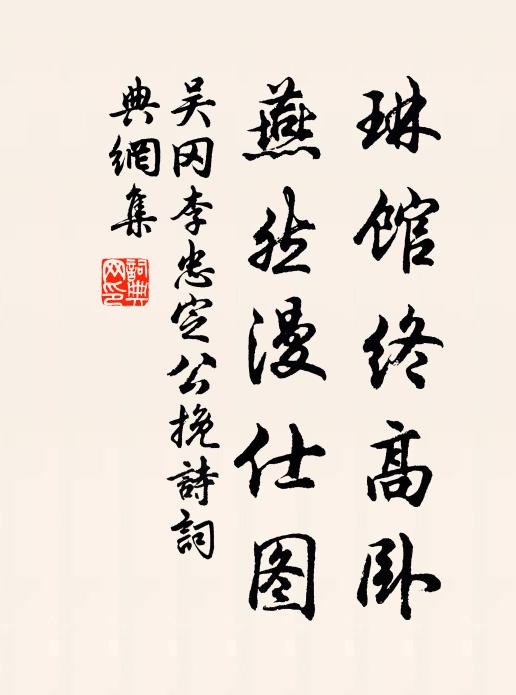 琳馆终高卧
燕然漫仕图
吴冈李忠定公挽詩詞
典網集
詞典
网印